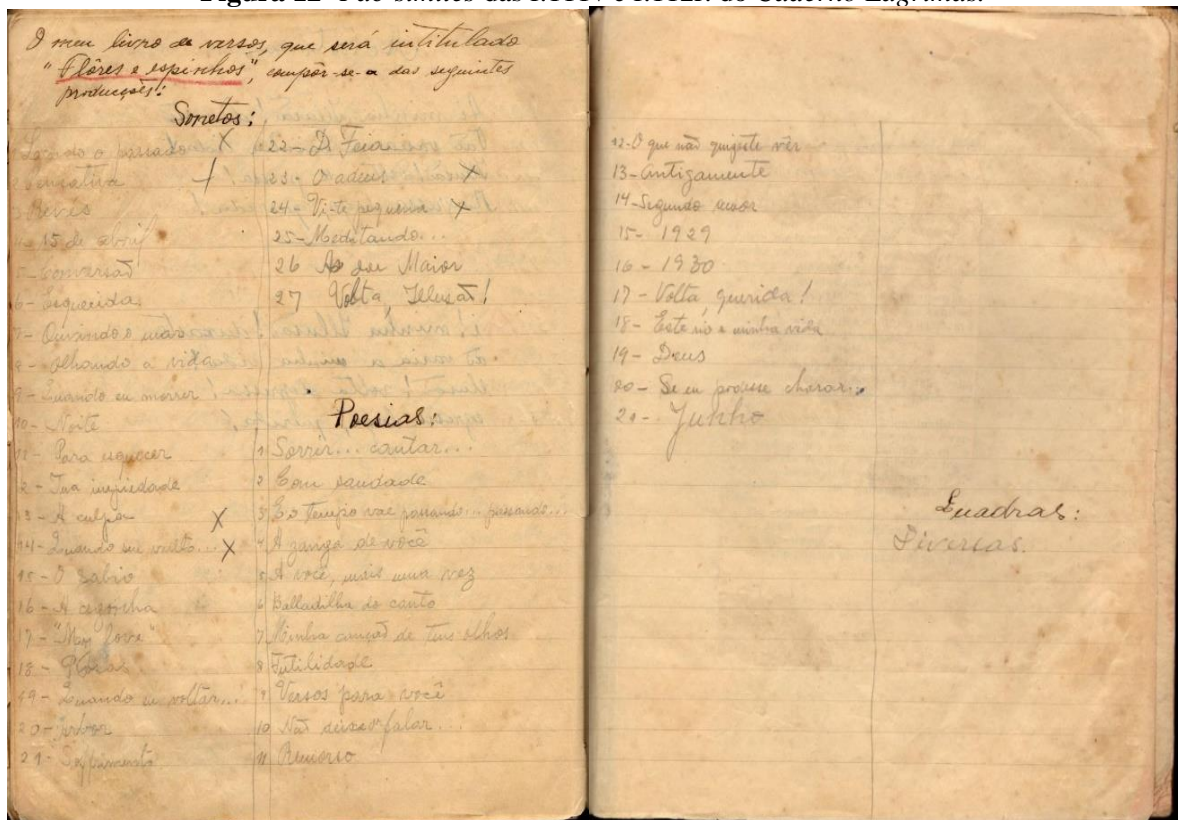 Figura 22- Fac-símiles das f.111v e f.112r. do Caderno Lágrimas.
O meu livro de versos, que será intitulado
"Flôres e espinhos", compôr-se-a das seguintes
producções:
Sonetos:
o passado X
+
Revés
4- 15 de abril
5- Conversão
6- Esquecida
7- Ouvindo o mar
8- Olhando a vida
9- Quando eu morrer!
10- Noite
11- Para esquecer
12- Tua impiedade
13- A culpa X
14- Quando eu volto... X
15- O sabio
16- A cegonha
17- "My love"
18-
19- Quando eu voltar...
20-
21- Soffrimento
22- A Feia
23- O adeus X
24- Vi-te pequena X
25- Meditando...
26 Maior
27 Volta, Illusão!
Poesias:
1 Sorrir... cantar...
2 Com saudade
3 E o Tempo vae passando... passando...
4 A zanga de você
5 A você, mais uma vez
6 Balladilha do canto
7 Minha canção de teus olhos
8 Futilidade
9 Versos para você
10 Não deixe falar...
11 Remorso
12- O que não quizeste vêr
13- Antigamente
14- Segundo amor
15- 1929
16- 1930
17- Volta, querida!
18- Este rio e minha vida
19- Deus
20- Se eu podesse chorar...
20- Junho
Quadras:
Diversas.